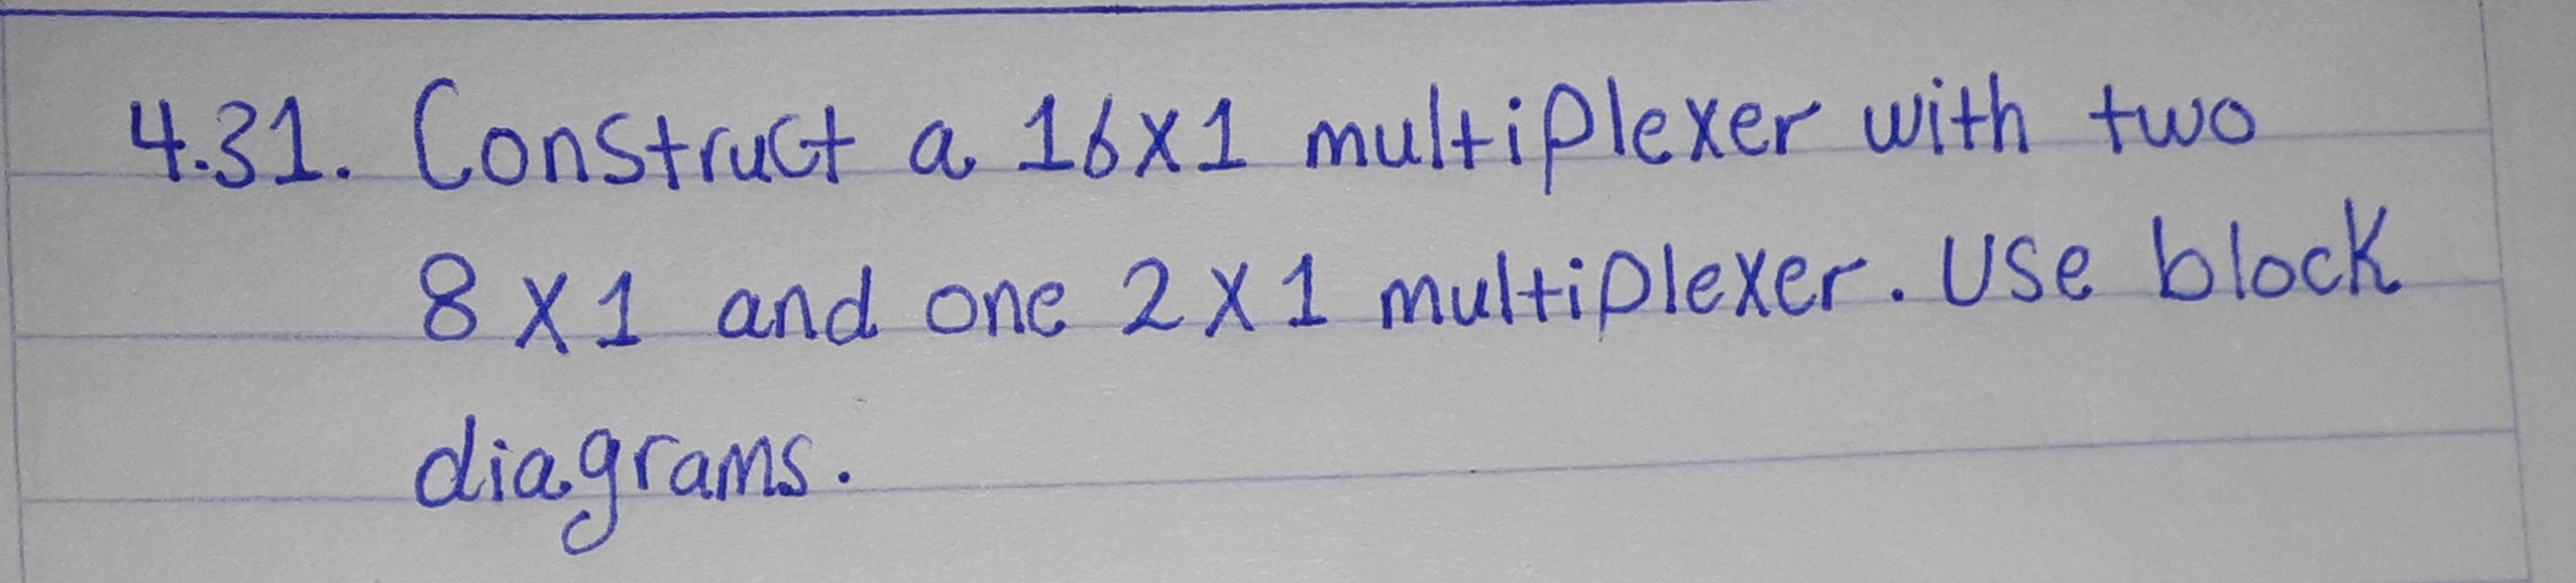 4.31. Construct a 16x1 multiplexer with two
8x1 and one 2x1 multiplexer. Use block
diagrams.